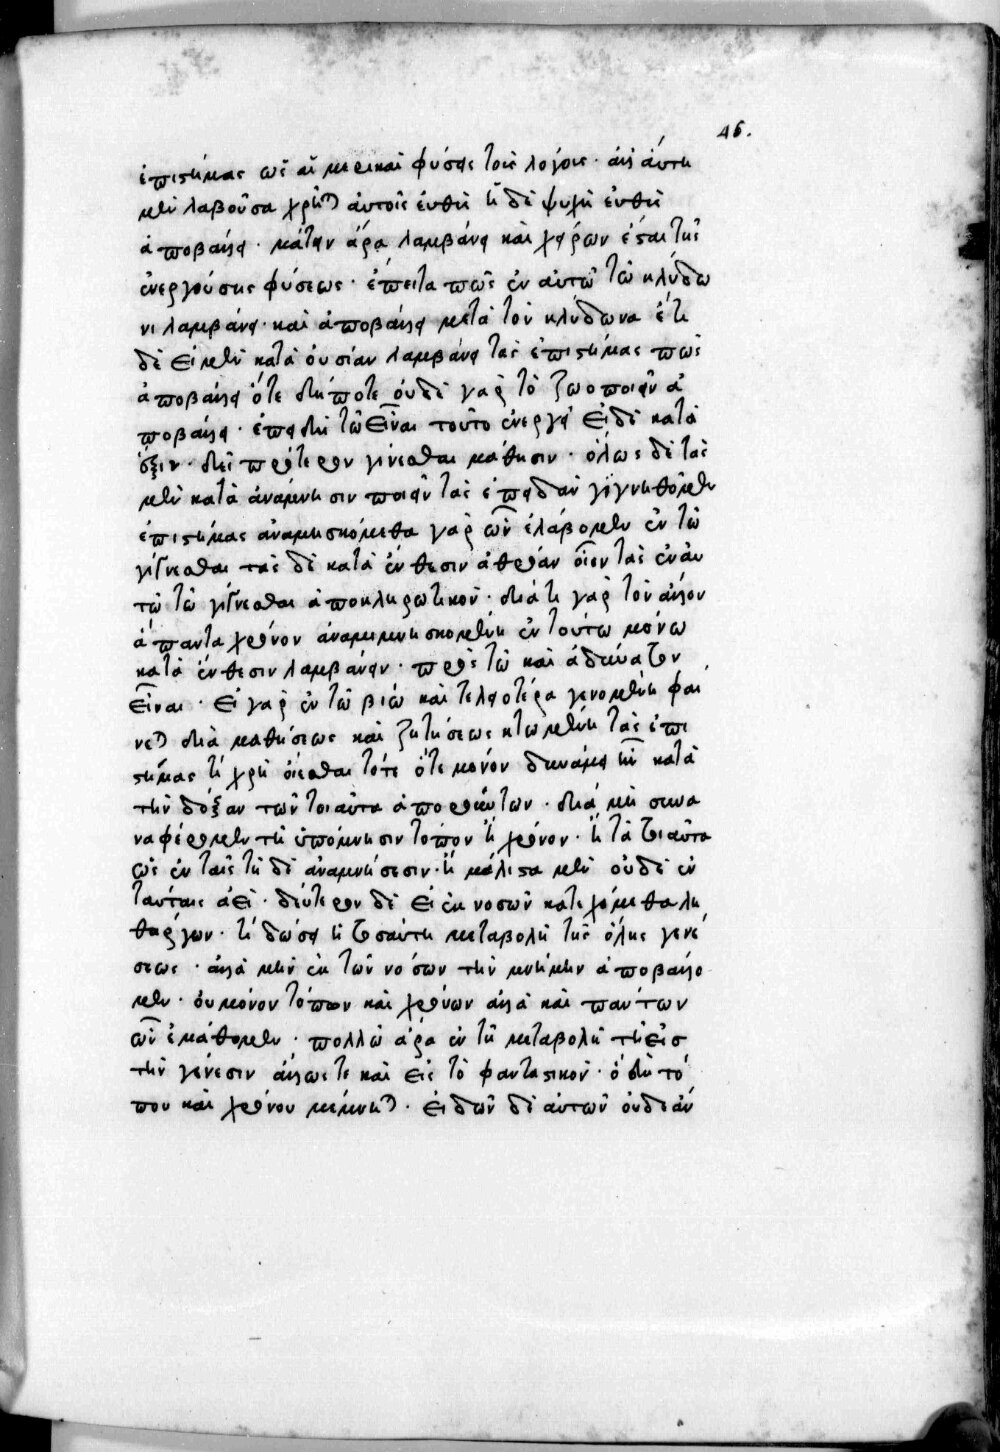 46.
ἐπιστήμας ὡς αἱ μερικαὶ φύσεις τοὺς λόγους · ἀλλ' αὐτη
μὲν λαβοῦσα χρῆται αὐτοῖς εὐθὺς ἡ δὲ ψυχὴ εὐθὺς
ἀποβάλλει · μάτην ἄρα λαμβάνει καὶ χείρων ἔσται τῆς
ἐνεργούσης φύσεως · ἔπειτα πῶς ἐν αὐτῶ τῶ κλύδω
νι λαμβάνει · καὶ ἀποβάλλει μετὰ τὸν κλύδωνα ἔτι
δὲ εἰ μὲν κατὰ οὐσίαν λαμβάνει τὰς ἐπιστήμας πῶς
ἀποβάλλει ὅτε δήποτε οὐδὲ γὰρ τὸ ζωοποιεῖν ἀ
ποβάλλει · ἐπειδὴ τῶ εἶναι τοῦτο ἐνεργεῖ εἰ δὲ κατὰ
ἕξιν · δεῖ πρότερον γίνεσθαι μάθησιν · ὅλως δὲ τὰς
μὲν κατὰ ἀνάμνησιν ποιεῖν τὰς ἐπειδὰν
ἐπιστήμας ἀναμιμνησκόμεθα γὰρ ὧν ἐλάβομεν ἐν τῶ
γίγνεσθαι τὰς δὲ κατὰ ἔνθεσιν ἀθρόαν οἷον τὰς ἐν αυ
τῶ τῶ γίγνεσθαι ἀποκληρωτικὸν · διὰ τί γὰρ τὸν ἄλλον
ἅπαντα χρόνον ἀναμιμνησκομένη ἐν τούτω μόνω
κατὰ ἔνθεσιν λαμβάνειν · πρὸς τῶ καὶ ἀδύνατον
εἶναι · εἰ γὰρ ἐν τῶ βίω καὶ τελειοτέρα γενομένη φαί
νεται διὰ μαθήσεως καὶ ζητήσεως κτωμένη τὰς ἐπι
στήμας τί χρὴ οἴεσθαι τότε ὅτε μόνον δυνάμει ἦν κατὰ
τὴν δόξαν τῶν τοιαῦτα ἀπορούντων · διὰ μὴ συνα
ναφέρομεν τῆ ὑπομνήσιν τόπον ἢ χρόνον · ἢ τὰ τοιαῦτα
ὡς ἐν ταῖς τῆδε ἀναμνήσεσιν · ἢ μάλιστα μὲν οὐδὲ ἐν
ταύταις ἀεὶ · δεύτερον δὲ εἰ ἐκ νοσῶν κατεχόμεθα λη
θάργων · τί δώσει ἡ τοσαύτη μεταβολὴ τῆς ὅλης γενέ
σεως · ἀλλὰ μὴν ἐκ τῶν νόσων τὴν μνήμην ἀποβάλλο
μεν · οὐ μόνον τόπων καὶ χρόνων ἀλλὰ καὶ πάντων
ὧν ἐμάθομεν · πολλῶ ἄρα ἐν τῆ μεταβολῆ τῆ εἰσ
τὴν γένεσιν ἄλλως τε καὶ εἰς τὸ φανταστικὸν · ὃ δὴ τό
που καὶ χρόνου μέμνηται · εἰδῶν δὲ αὐτῶν οὐδὲ ἂν